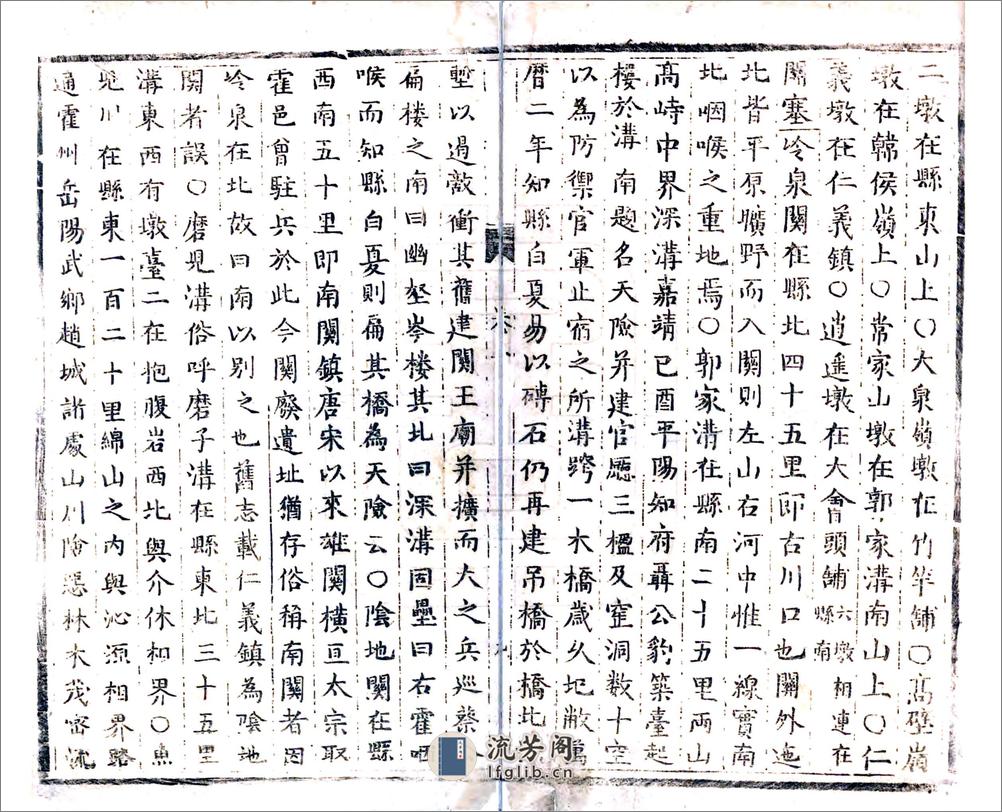 二墩在縣東山上〇大泉嶺墩在竹竿舖〇高壁嶺
墩在韓侯嶺上〇常家山墩在郭家溝南山上〇仁
義墩在仁義鎮〇逍遥墩在大會頭舖六墩相連在縣南
關塞冷泉關在縣北四十五里即古川口也關外迤
北皆平原曠野而入關則左山右河中惟一線實南
北咽喉之重地焉〇郭家溝在縣南二十五里兩山
高峙中界深溝嘉靖己酉平陽知府聶公豹築臺起
樓於溝南題名天險并建官廳三楹及窑洞数十空
以為防禦官軍止宿之所溝跨一木橋歲久圮敝萬
曆二年知縣白夏易以磚石仍再建吊橋於橋北
塹以遏敵衝其舊建関王廟并擴而大之兵巡蔡
扁楼之南曰幽壑岑楼其北曰深溝固壘曰右霍咽
喉而知縣白夏則扁其橋為天險云〇陰地関在縣
西南五十里即南関鎮唐宋以來雄関横亘太宗取
霍邑曾駐兵於此今関廢遺址猶存俗称南関者因
冷泉在北故曰南以别之也舊志載仁義鎮為陰地
関者誤〇磨見溝俗呼磨子溝在縣東北三十五里
溝東西有墩臺二在抱腹岩西北與介休相界〇魚
児川在縣東一百二十里綿山之内與沁源相界路
通霍州岳陽武鄉趙城諸處山川險惡林木茂密流
流芳阁
lfglib.cn